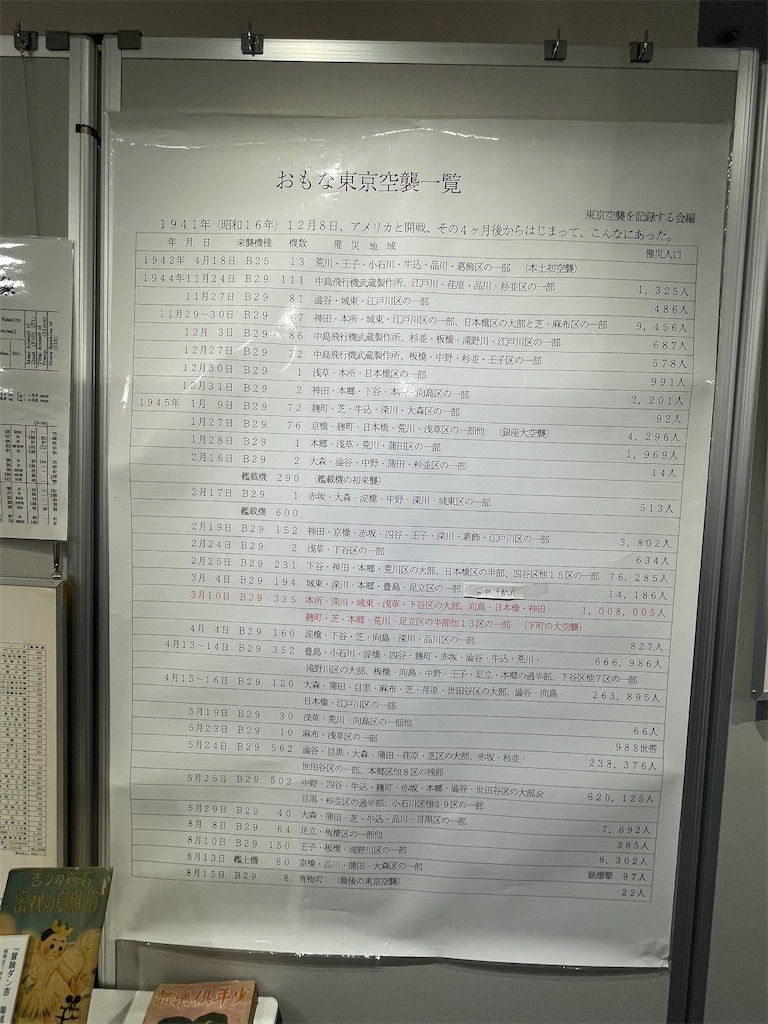 おもな東京空襲一覧
東京空襲を記録する会編
1941年（昭和16年）12月8日、アメリカと開戦、その4ヶ月後からはじまって、こんなにあった。
年 月 日 来襲機種 機数 罹 災 地 域 罹災人口
1942年 4月18日 B25 13 荒川・王子・小石川・牛込・品川・葛飾区の一部 （本土初空襲）
1944年11月24日 B29 111 中島飛行機武蔵製作所、江戸川・荏原・品川・杉並区の一部 1,325人
11月27日 B29 81 澁谷・城東・江戸川区の一部 486人
11月29～30日 B29 神田・本所・城東・江戸川区の一部、日本橋区の大部と芝・麻布区の一部 9,456人
12月 3日 B29 86 中島飛行機武蔵製作所、杉並・板橋・滝野川・江戸川区の一部 687人
12月27日 B29 72 中島飛行機武蔵製作所、板橋・中野・杉並・王子区の一部 578人
12月30日 B29 1 浅草・本所・日本橋区の一部 991人
12月31日 B29 2 神田・本郷・下谷・本所・向島区の一部 2,201人
1945年 1月 9日 B29 72 麹町・芝・牛込・深川・大森区の一部 92人
1月27日 B29 76 京橋・麹町・日本橋・荒川・浅草区の一部他 （銀座大空襲） 4,296人
1月28日 B29 1 本郷・浅草・荒川・蒲田区の一部 1,969人
2月16日 B29 2 大森・澁谷・中野・蒲田・杉並区の一部 14人
艦載機 290 （艦載機の初来襲）
2月17日 B29 1 赤坂・大森・淀橋・中野・深川・城東区の一部 513人
艦載機 600
2月19日 B29 152 神田・京橋・赤坂・四谷・王子・深川・葛飾・江戸川区の一部 3,802人
2月24日 B29 2 浅草・下谷区の一部 634人
2月25日 B29 231 下谷・神田・本郷・荒川区の大部、日本橋区の半部、四谷区他15区の一部 76,285人
3月 4日 B29 194 城東・深川・本郷・豊島・足立区の一部 14,186人
3月10日 B29 325 本所・深川・城東・浅草・下谷区の大部、向島・日本橋・神田・ 1,008,005人
麹町・芝・本郷・荒川・足立区の半部他13区の一部 （下町の大空襲）
4月 4日 B29 160 淀橋・下谷・芝・向島・深川・品川区の一部 827人
4月13～14日 B29 352 豊島・小石川・淀橋・四谷・麹町・赤坂・澁谷・牛込・荒川・ 666,986人
滝野川区の大部、板橋・向島・中野・王子・足立・本郷の過半部、下谷区他7区の一部
4月15～16日 B29 120 大森・蒲田・目黒・麻布・芝・荏原・世田谷区の大部、澁谷・向島・ 263,895人
日本橋・江戸川区の一部
5月19日 B29 30 浅草・荒川・向島区の一部他 66人
5月23日 B29 10 麻布・浅草区の一部 988世帯
5月24日 B29 562 澁谷・目黒・大森・蒲田・荏原・芝区の大部、赤坂・杉並・ 238,376人
世田谷区の一部、本郷区他8区の残部
5月25日 B29 502 中野・四谷・牛込・麹町・赤坂・本郷・澁谷・世田谷区の大部分 620,125人
目黒・杉並区の過半部、小石川区他19区の一部
5月29日 B29 40 大森・蒲田・芝・牛込・品川・目黒区の一部 7,692人
8月 8日 B29 64 足立・板橋区の一部他 385人
8月10日 B29 150 王子・板橋・滝野川区の一部 9,302人
8月13日 艦上機 60 京橋・品川・蒲田・大森区の一部 銃爆撃 97人
8月15日 B29 8 青梅町 （最後の東京空襲） 22人
冒険ダン吉